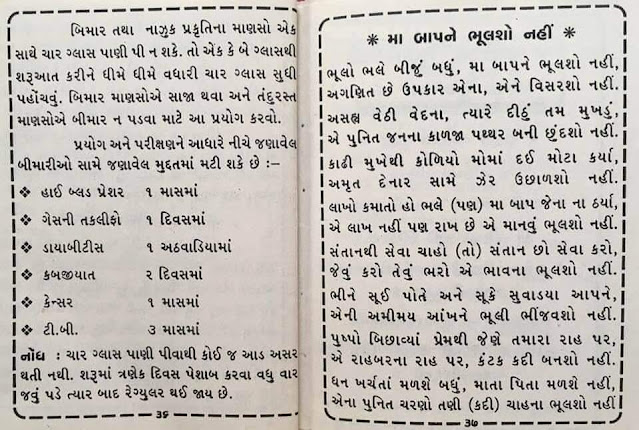 બિમાર તથા નાઝુક પ્રકૃતિના માણસો એક
સાથે ચાર ગ્લાસ પાણી પી ન શકે. તો એક કે બે ગ્લાસથી
શરૂઆત કરીને ધીમે ધીમે વધારી ચાર ગ્લાસ સુધી
પહોંચવું. બિમાર માણસોએ સાજા થવા અને તંદુરસ્ત
માણસોએ બીમાર ન પડવા માટે આ પ્રયોગ કરવો.
પ્રયોગ અને પરીક્ષણને આધારે નીચે જણાવેલ
બીમારીઓ સામે જણાવેલ મુદતમાં મટી શકે છે :–
❖ હાઈ બ્લડ પ્રેશર ૧ માસમાં
❖ ગેસની તકલીફો ૧ દિવસમાં
❖ ડાયાબીટીસ ૧ અઠવાડિયામાં
❖ કબજીયાત ૨ દિવસમાં
❖ કેન્સર ૧ માસમાં
❖ ટી.બી. ૩ માસમાં
નોંધ : ચાર ગ્લાસ પાણી પીવાથી કોઈ જ આડ અસર
થતી નથી. શરૂમાં ત્રણેક દિવસ પેશાબ કરવા વધુ વાર
જવું પડે ત્યાર બાદ રેગ્યુલર થઈ જાય છે.
૩૬
❋ મા બાપને ભૂલશો નહીં ❋
ભૂલો ભલે બીજું બધું, મા બાપને ભૂલશો નહીં,
અગણિત છે ઉપકાર એના, એને વિસરશો નહીં.
અસહ્ય વેઠી વેદના, ત્યારે દીઠું તમ મુખડું,
એ પુનિત જનના કાળજા પથ્થર બની છુંદશો નહીં.
કાઢી મુખેથી કોળિયો મોમાં દઈ મોટા કર્યા,
અમૃત દેનાર સામે ઝેર ઉછાળશો નહીં.
લાખો કમાતો હો ભલે (પણ) મા બાપ જેના ના ઠર્યા,
એ લાખ નહીં પણ રાખ છે એ માનવું ભૂલશો નહીં.
સંતાનથી સેવા ચાહો (તો) સંતાન છો સેવા કરો,
જેવું કરો તેવું ભરો એ ભાવના ભૂલશો નહીં.
ભીને સૂઈ પોતે અને સૂકે સુવાડયા આપને,
એની અમીમય આંખને ભૂલી ભીંજવશો નહીં.
પુષ્પો બિછાવ્યાં પ્રેમથી જેણે તમારા રાહ પર,
એ રાહબરના રાહ પર, કંટક કદી બનશો નહીં.
ધન ખર્ચતાં મળશે બધું, માતા પિતા મળશે નહીં,
એના પુનિત ચરણો તણી (કદી) ચાહના ભૂલશો નહીં.
૩૭